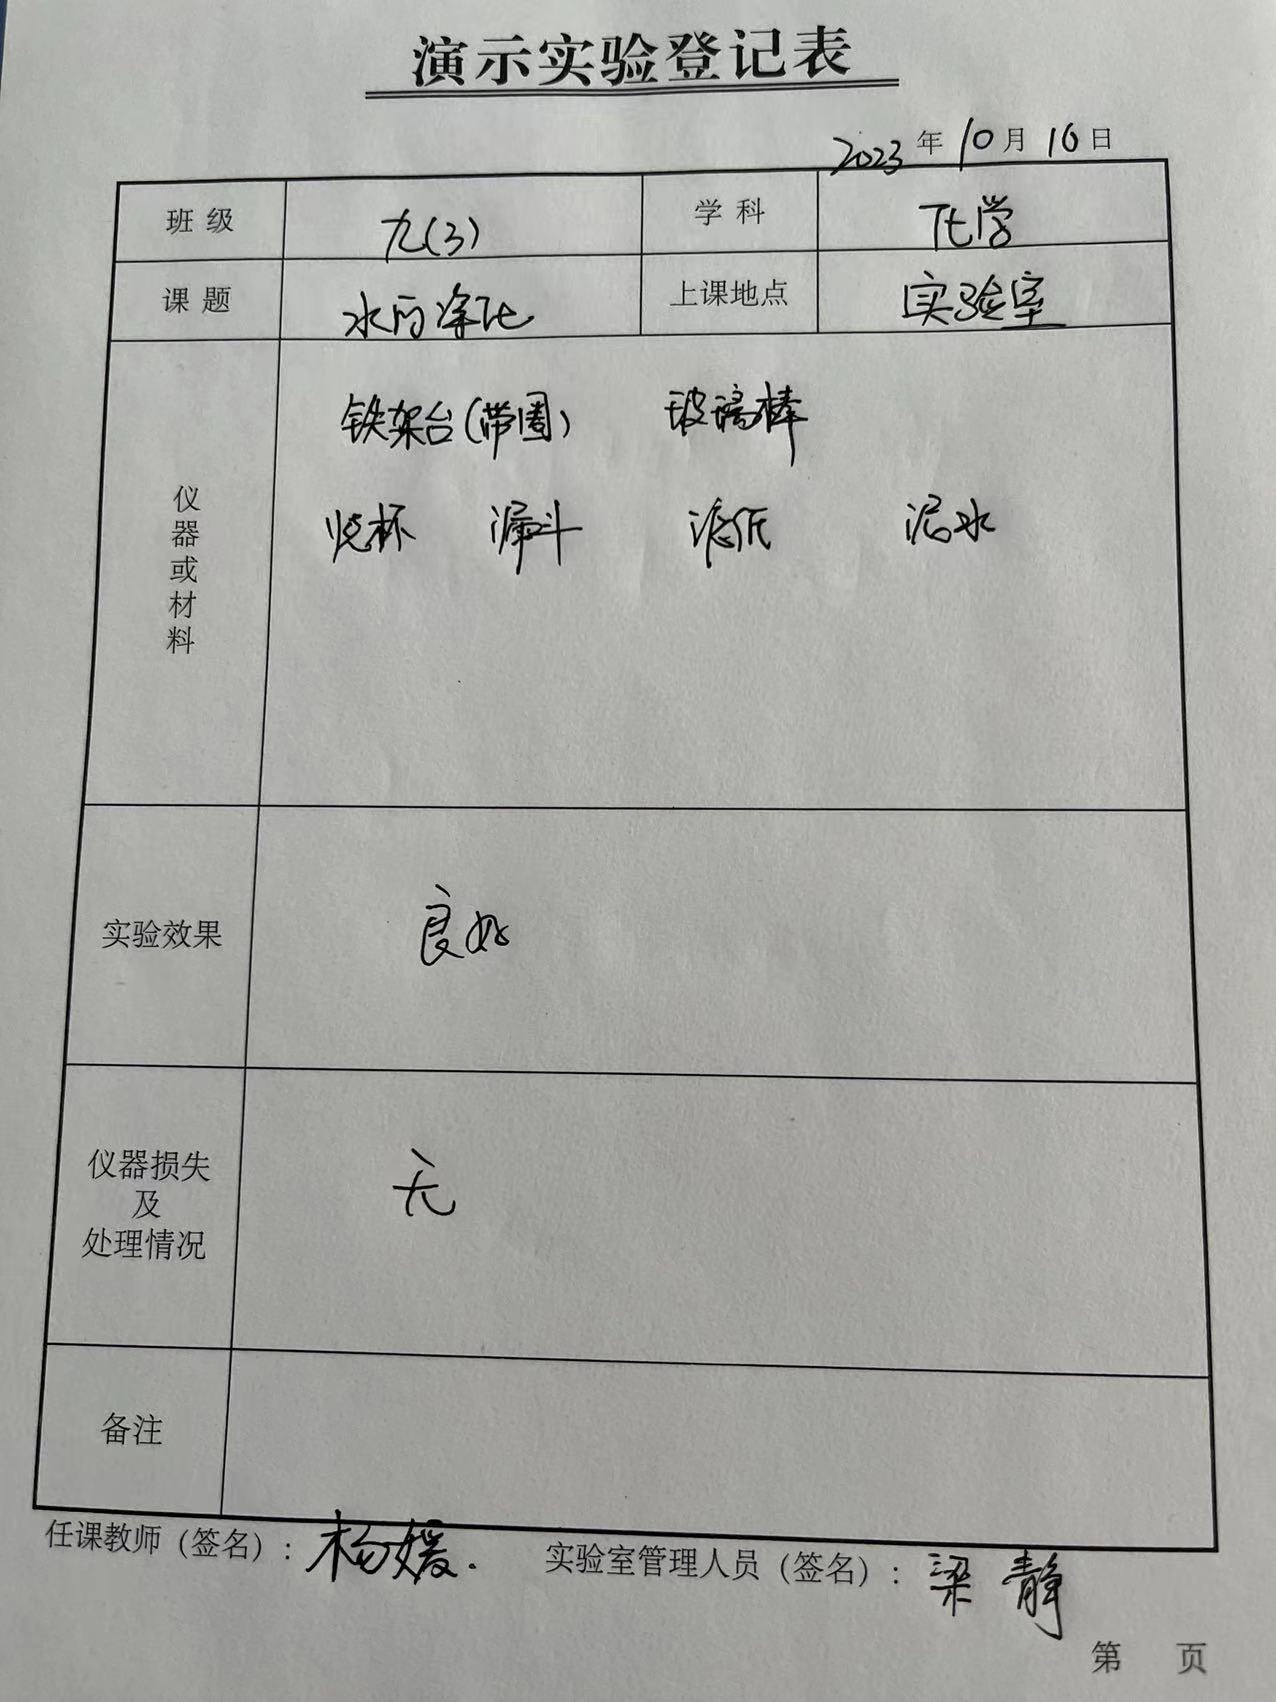 演示实验登记表
2023年10月16日
班级 九(3) 学科 化学
课题 水的净化 上课地点 实验室
仪器或材料
铁架台(带圈) 玻璃棒
烧杯 漏斗 滤纸 泥水
实验效果 良好
仪器损失
及
处理情况
无
备注
任课教师(签名): 杨媛. 实验室管理人员(签名): 梁静
第 页